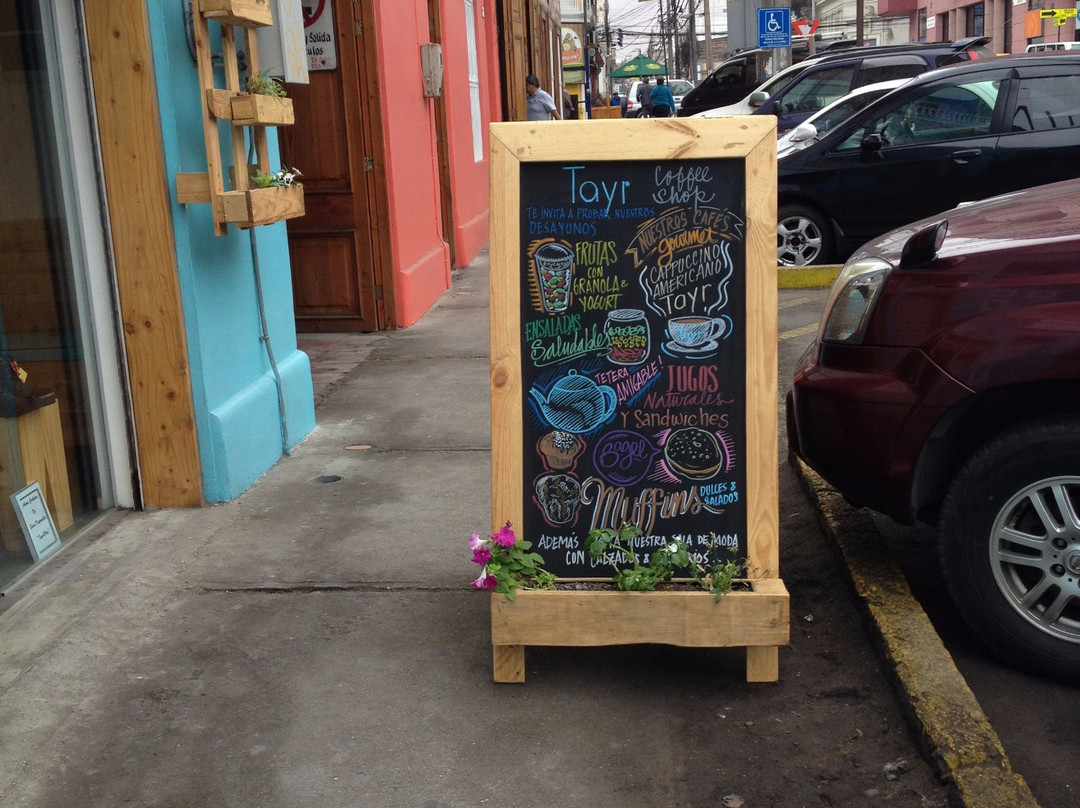 Salida
Tayr
Coffee
Shop
TE INVITA A PROBAR NUESTROS
DESAYUNOS
NUESTROS CAFÉS
gourmet
CAPPUCCINO
AMERICANO
Tayr
FRUTAS
CON
GRANOLA &
YOGURT
ENSALADAS
Saludables
TETERA
AMIGABLE!
JUGOS
Naturales
Y Sandwiches
Bagel
Muffins
DULCES &
SALADOS
ADEMÁS NUESTRA SALA DE MODA
CON CALZADOS &